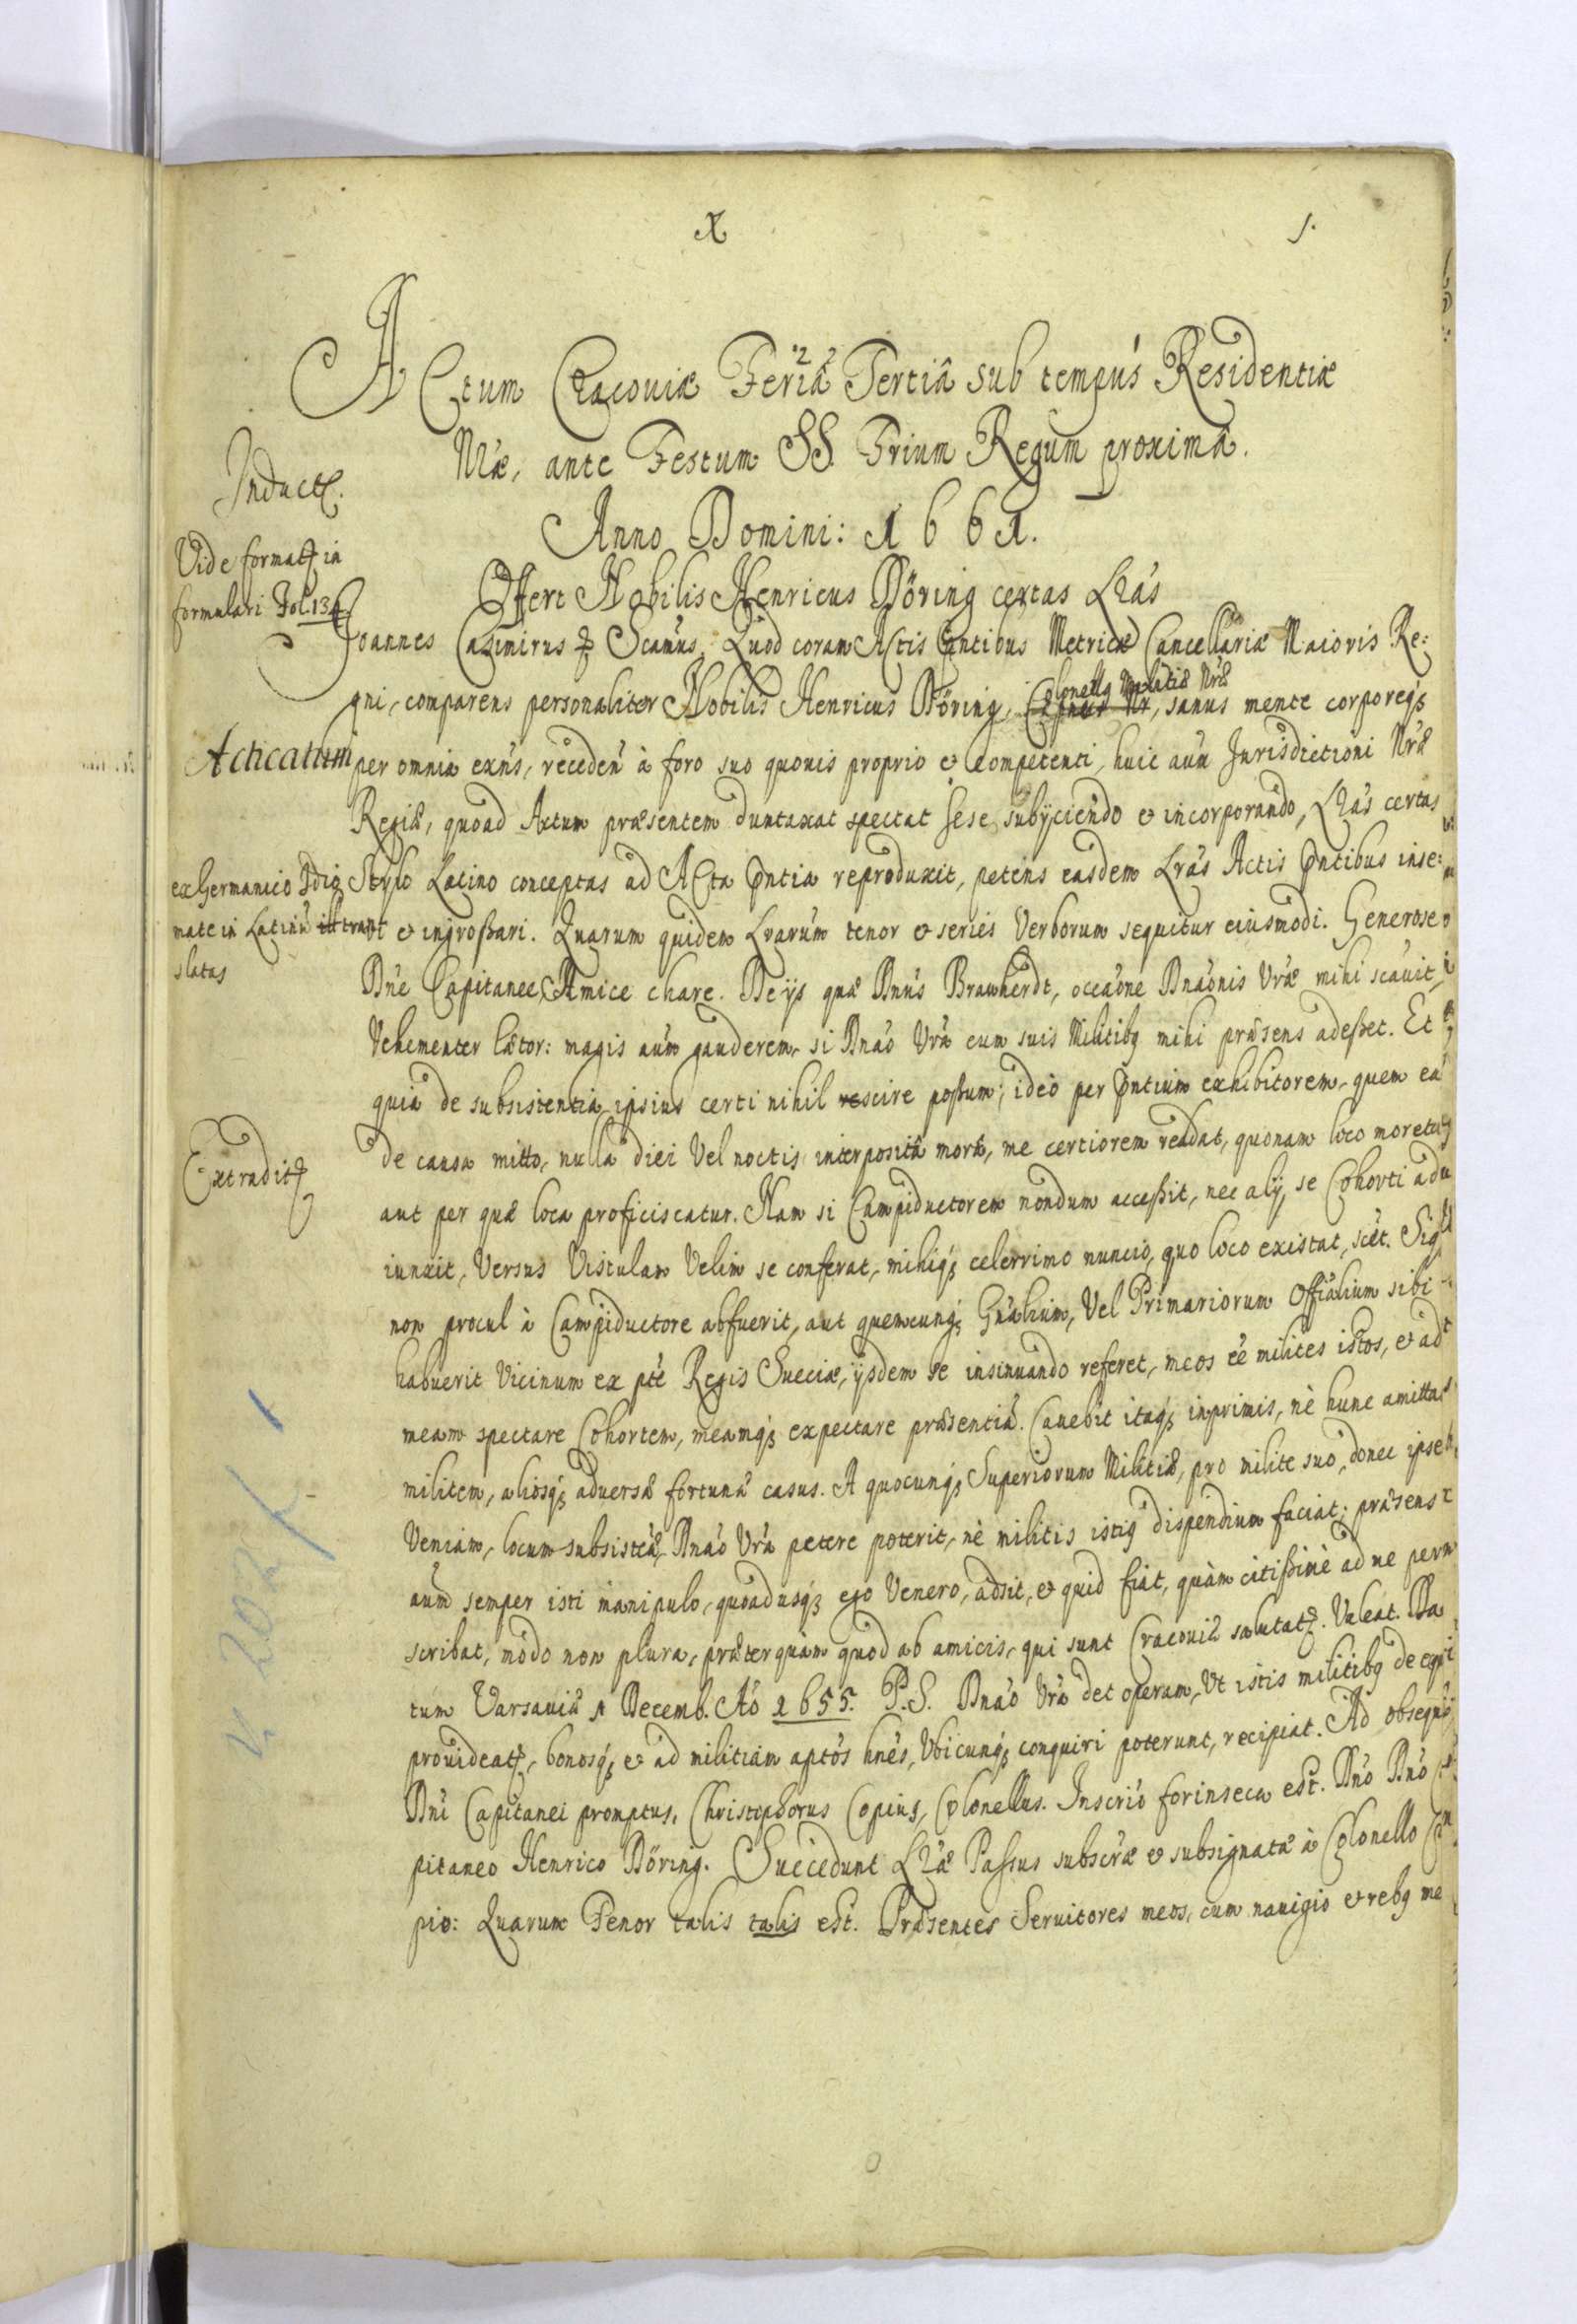 X
1.
ACtum Cracoviæ Feriâ Tertiâ sub tempus Residentiæ
Nræ, ante Festum SS. Trium Regum proximâ.
Induct.
Anno Domini: 1661.
Vide format in
formulari Fol. 134
Offert Nobilis Henricus Döring certas Lrás
Joannes Casimirus & Scamus. Quod coram Actis Pntibus Metricæ Cancellariæ Maioris Re:
gni, comparens personaliter Nobilis Henricus Döring, Colonellg Nræ, sanus mente corporeqȝ
Acticatum
per omnia exńs, recedeń à foro suo quovis proprio & competenti, huic auń Jurisdictioni Nræ
Regiæ, quoad Actum præsentem duntaxat spectat sese subijciendo & incorporando, Lrás certas
ex Germanico Idio
mate in Latinū tran
slatas
Stylo Latino conceptas ad Acta Pntia reproduxit, petens easdem Lrás Actis Pntibus inse:
& ingroßari. Quarum quidem Lrarum tenor & series Verborum sequitur eiusmodi. Generose
Dńe Capitanee, Amice chare. De ijs quæ Dnús Brawherdt, occaóne Dnaónis Vræ mihi scauit,
Vehementer lætor: magis aúm gauderem, si Dnaó Vrá cum suis Militibg mihi præsens adeßet. Et
quia de subsistentia ipsius certi nihil scire poßum; ideò per Pntium exhibitorem, quem eá
Extradit
de causa mitto, nullâ diei Vel noctis interpositâ morâ, me certiorem reddat, quonam loco moretur
aut per quæ loca proficiscatur. Nam si Campiductorem nondum acceßit, nec alij se Cohorti ad
iunxit, Versus Vistulam Velim se conferat, mihiqȝ celerrimo nuncio, quo loco existat, scét.
non procul à Campiductore abfuerit, aut quemcunqȝ Gnálium, Vel Primariorum Officialium sibi
habuerit Vicinum ex pté Regis Sueciæ, ijsdem se insinuando referet, meos eé milites istos, & ad
meam spectare Cohortem, meamqȝ expectare præsentiá. Cauebit itaqȝ inprimis, nè hunc amittat
militem, aliosqȝ adversæ fortunæ casus. A quocunqȝ Superiorum Militiæ, pro milite suo, donec ipse
Veniam, locum subsisteá, Dnaó Vrá petere poterit, nè militis istig dispendium faciat; præsens
aúm semper isti manipulo, quoadusqȝ ego Venero, adsit, & quid fiat, quàm citißimè ad me perm
scribat, modo non plura, præterquàm quod ab amicis, qui sunt Cracoviæ salutat. Valeat. Da
tum Varsaviæ 1 Decemb. Aó 1655. P.S. Dnaó Vrá det operam, Ut istis militibg de
provideat, bonosqȝ & ad militiam aptós hnés, Vbicunqȝ conquiri poterunt, recipiat. Ad obsequia
Dni Capitanei promptus, Christophorus Copius, Colonellus. Inscrió forinseca est. Dnó Dnó
pitaneo Henrico Döring. Succedunt Lræ Passus subscræ & subsignatæ à Colonello
pio: Quarum Tenor talis talis est. Præsentes Servitores meos, cum navigio & rebg me